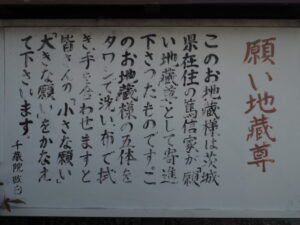 願い地蔵尊
このお地蔵様は茨城
県在住の篤信家が「願
い地蔵尊」として寄進
下さったものです。こ
のお地蔵様の五体を
タワシで洗い布で拭
き、手を合わせますと
皆さんの「小さな願い」
「大きな願い」をかなえ
て下さいます。
千蔵院